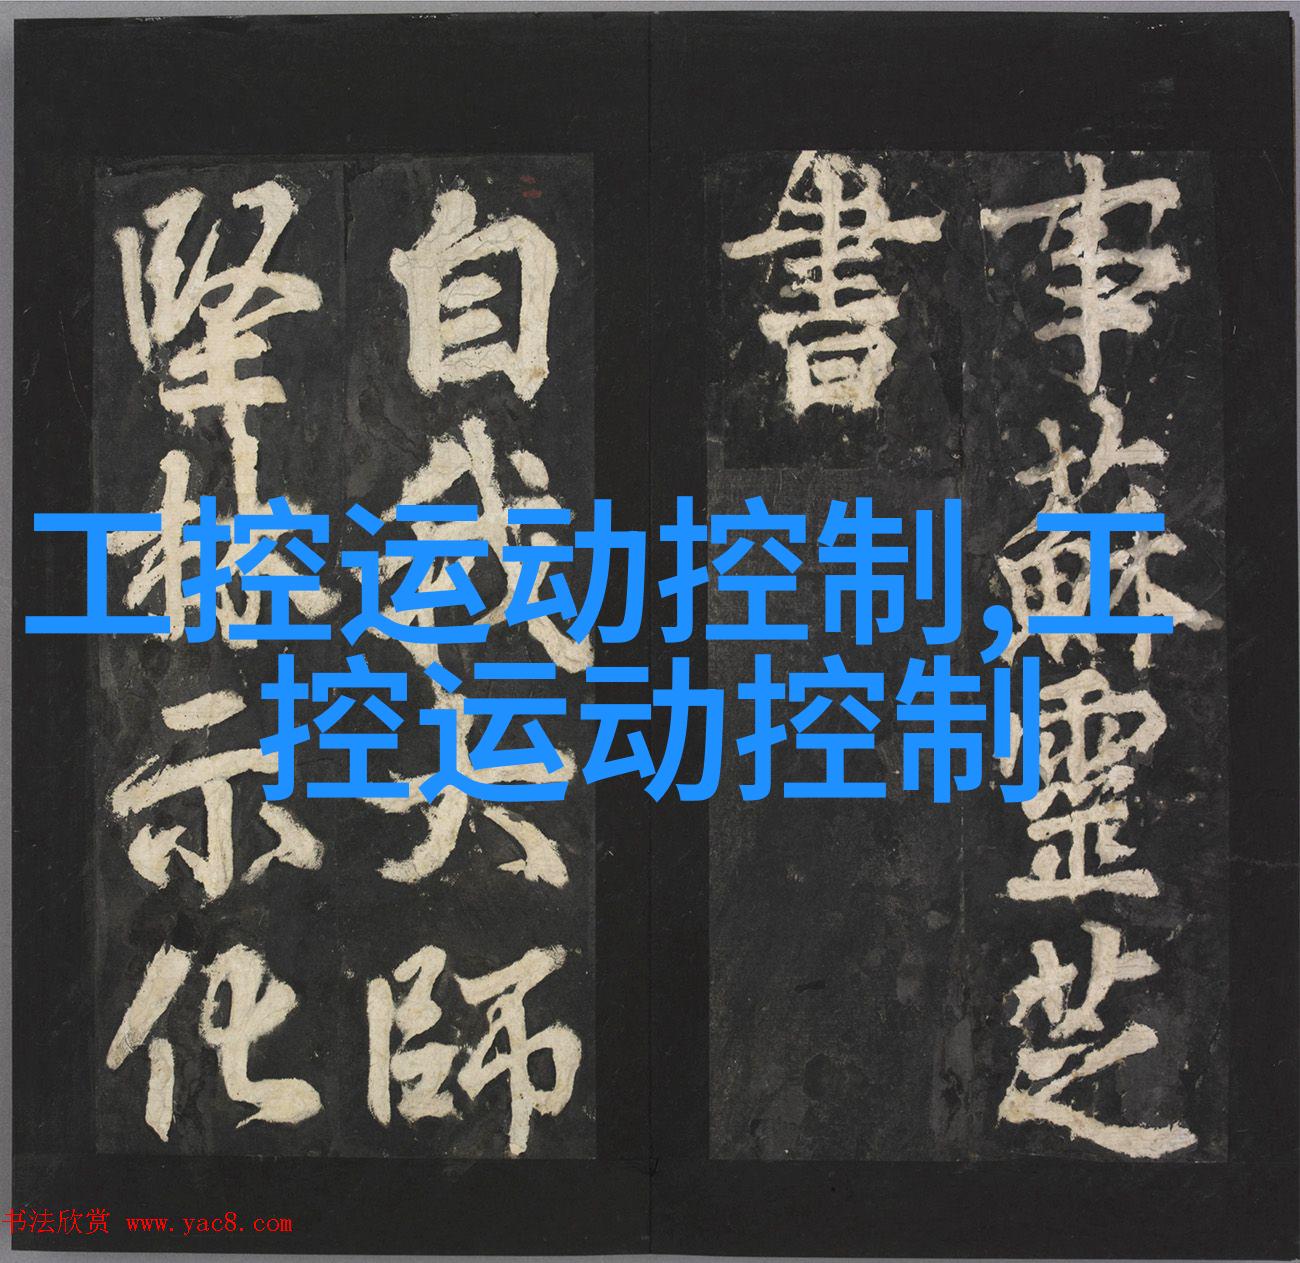 事蘇靈芝
書
自我大師
堅林示化
工控运动控制,工
控运动控制
书法欣赏 www.yac8.com